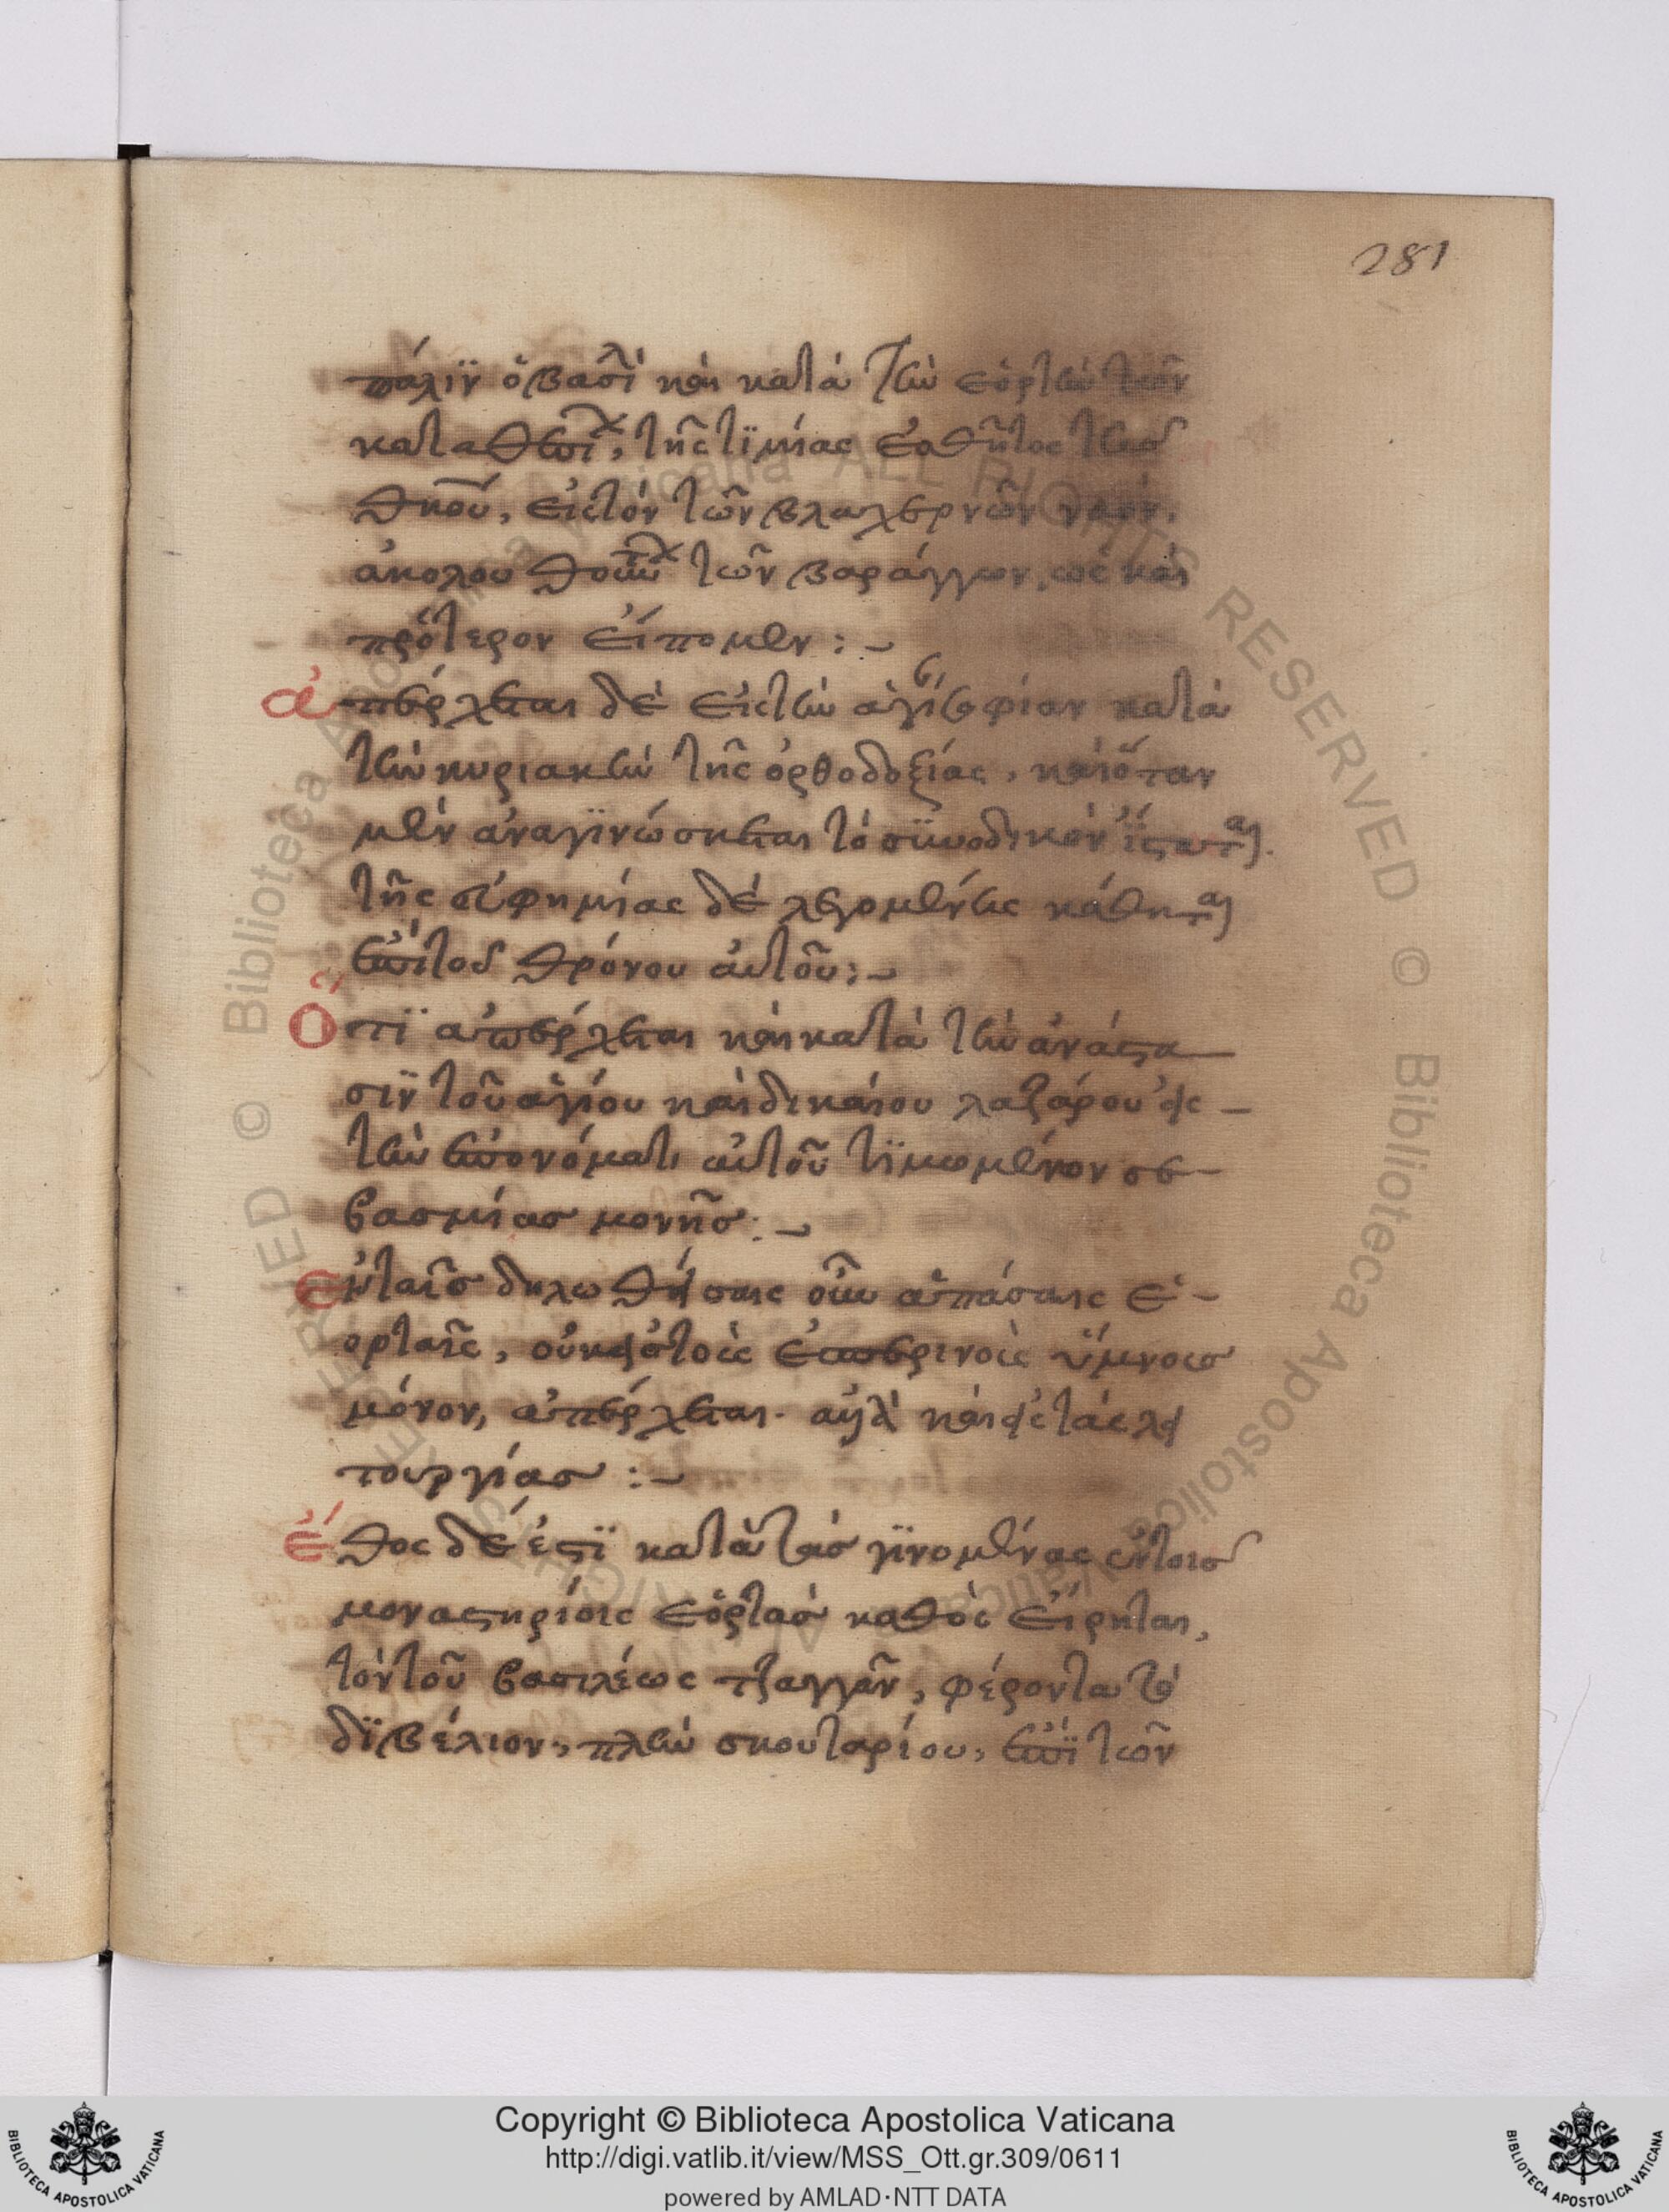 281
πάλιν ὁ βασιλ καὶ κατὰ τὴν ἑορτὴν τῶν
καταθεσι, τῆς τιμίας ἐσθῆτος τῆσ
θκου, εἰς τὸν τῶν βλαχερνῶν ναὸν.
ἀκολουθούν τῶν βαράγγων, ὡς καὶ
πρότερον εἴπομεν :-
ἀπέρχεται δὲ εἰς τὴν ἁγίαν σοφίαν κατὰ
τὴν κυριακὴν τῆς ὀρθοδοξίας, καὶ ὅταν
μὲν ἀναγϊνώσκεται τὸ συνοδικὸν ἵσταται.
τῆς εὐφημίας δὲ λεγομένης κάθηται
ἐπὶ τοῦ θρόνου αὐτοῦ :-
Ὅτι ἀπέρχεται καὶ κατὰ τὴν ἀνάστα
σιν τοῦ ἁγίου καὶ δικαίου λαζάρου εἰς -
τὴν ἐπ ὀνόματι αὐτοῦ τιμωμένην σε-
βασμίασ μονῆσ :-
ἐν ταῖσ δηλωθείσαις οὖν ἁπάσαις ἑ-
ορταῖς, οὐκ εἰς τοὺς ἑσπερινοὺς ὕμνουσ
μόνον, ἀπέρχεται. ἀλλὰ καὶ εἰς τὰς λει
τουργίασ :-
ἔθος δέ ἐστι κατὰ τὰσ γινομένας ἐν τοισ
μοναστηρίοις ἑορτὰσ καθὸς εἴρηται,
τὸν τοῦ βασιλέως τζαγγᾶν, φέροντα τὸ
διβέλιον, πλὴν σκουταρίου, ἐπὶ τῶν
Copyright © Biblioteca Apostolica Vaticana
http://digi.vatlib.it/view/MSS_Ott.gr.309/0611
powered by AMLAD·NTT DATA
BIBLIOTECA APOSTOLICA VATICANA
BIBLIOTECA APOSTOLICA VATICANA